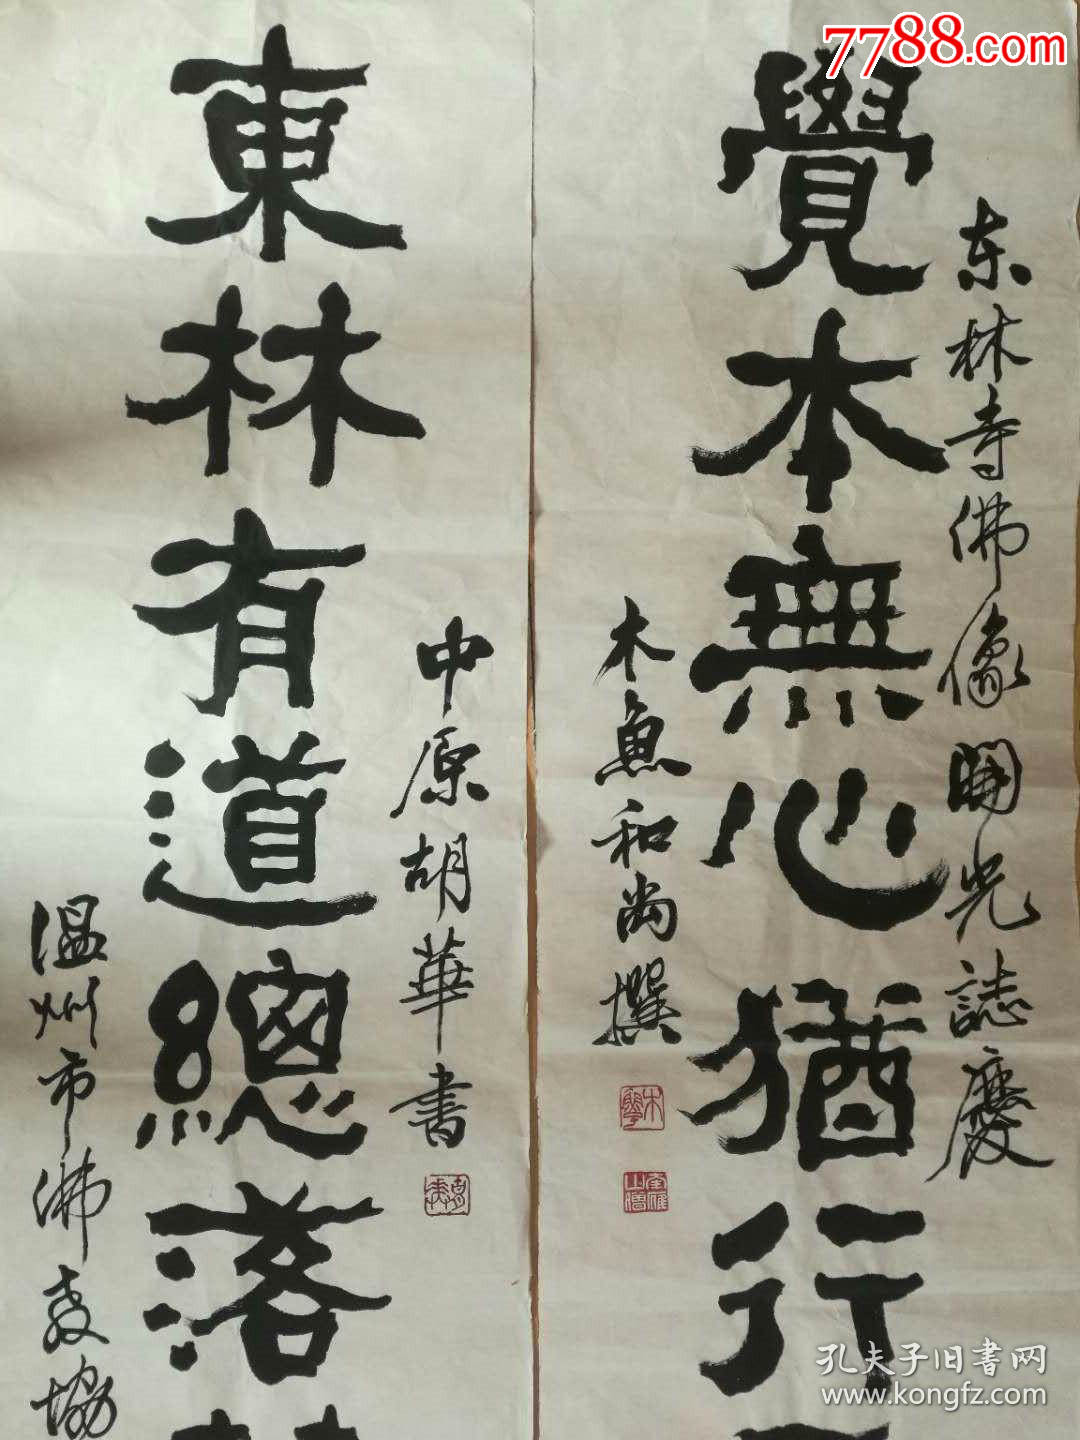 7788.com
东林寺佛像開光誌慶
覺本無心猶行
木魚和尚撰
中原胡華書
東林有道總落
温州市佛教協
孔夫子旧书网
www.kongfz.com